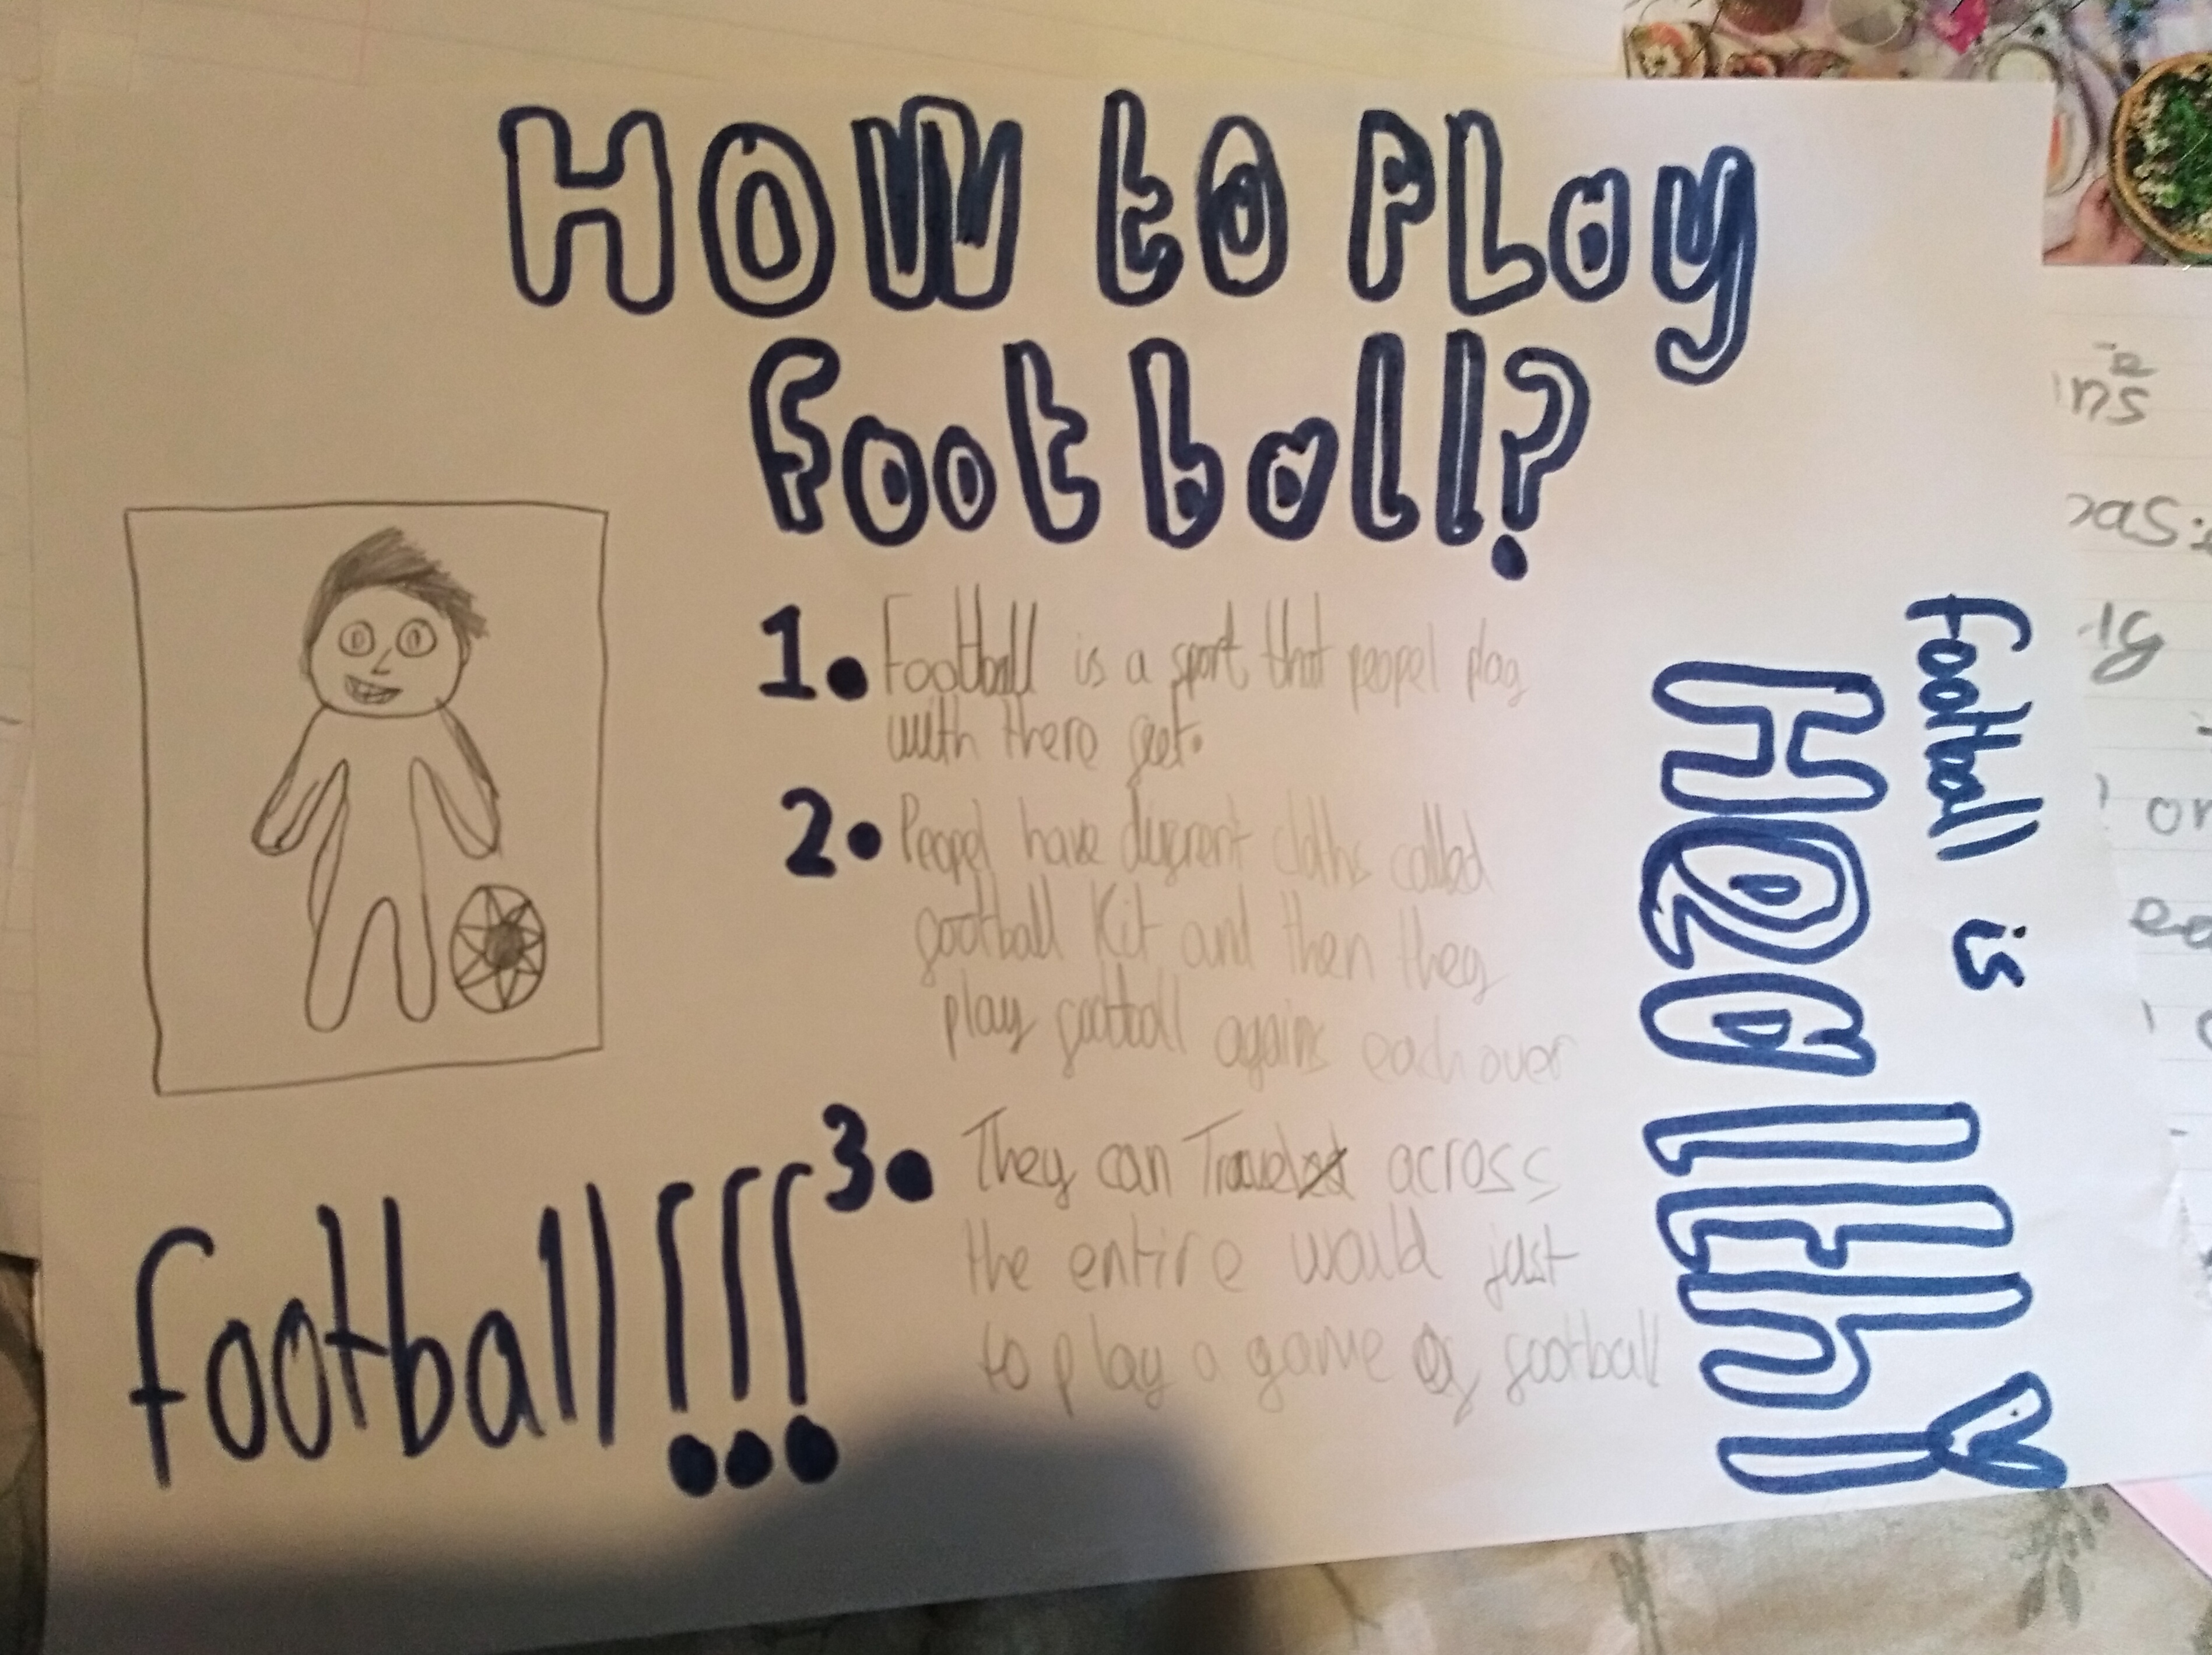 How to PLay
football?
1. Football is a sport that peopel play
with there feet.
2. Peopel have difrent cloths called
football Kit and then they
play football agains each over
3. They can Travel across
the entire would just
to play a game of football
football!!!
football is
Healthy
ins